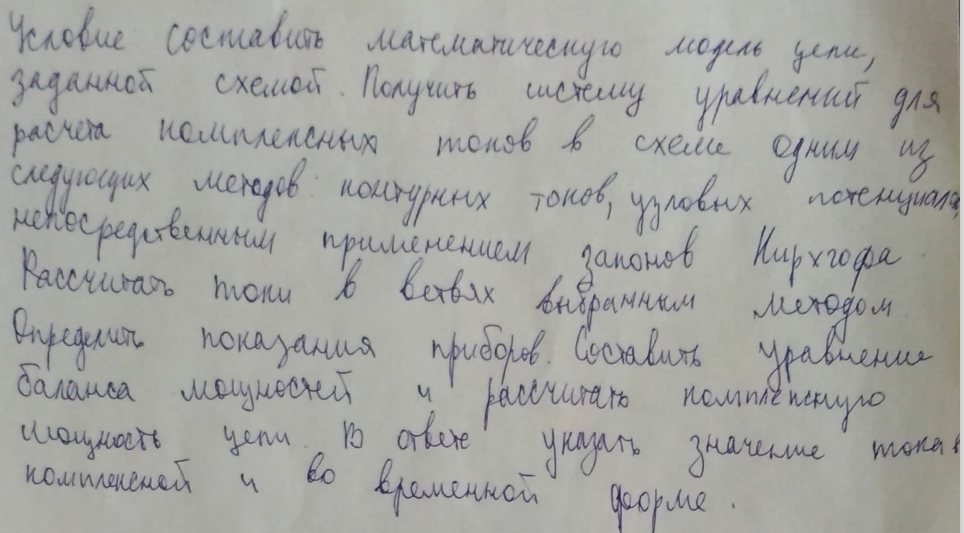 Условие составить математическую модель цепи,
заданной схемой. Получить систему уравнений для
расчета комплексных токов в схеме одним из
следующих методов: контурных токов, узловых потенциалов,
непосредственным применением законов Кирхгофа
Рассчитать токи в ветвях выбранным методом.
Определить показания приборов. Составить уравнение
баланса мощностей и рассчитать комплексную
мощность цепи. В ответе указать значение тока в
комплексной и во временной форме.